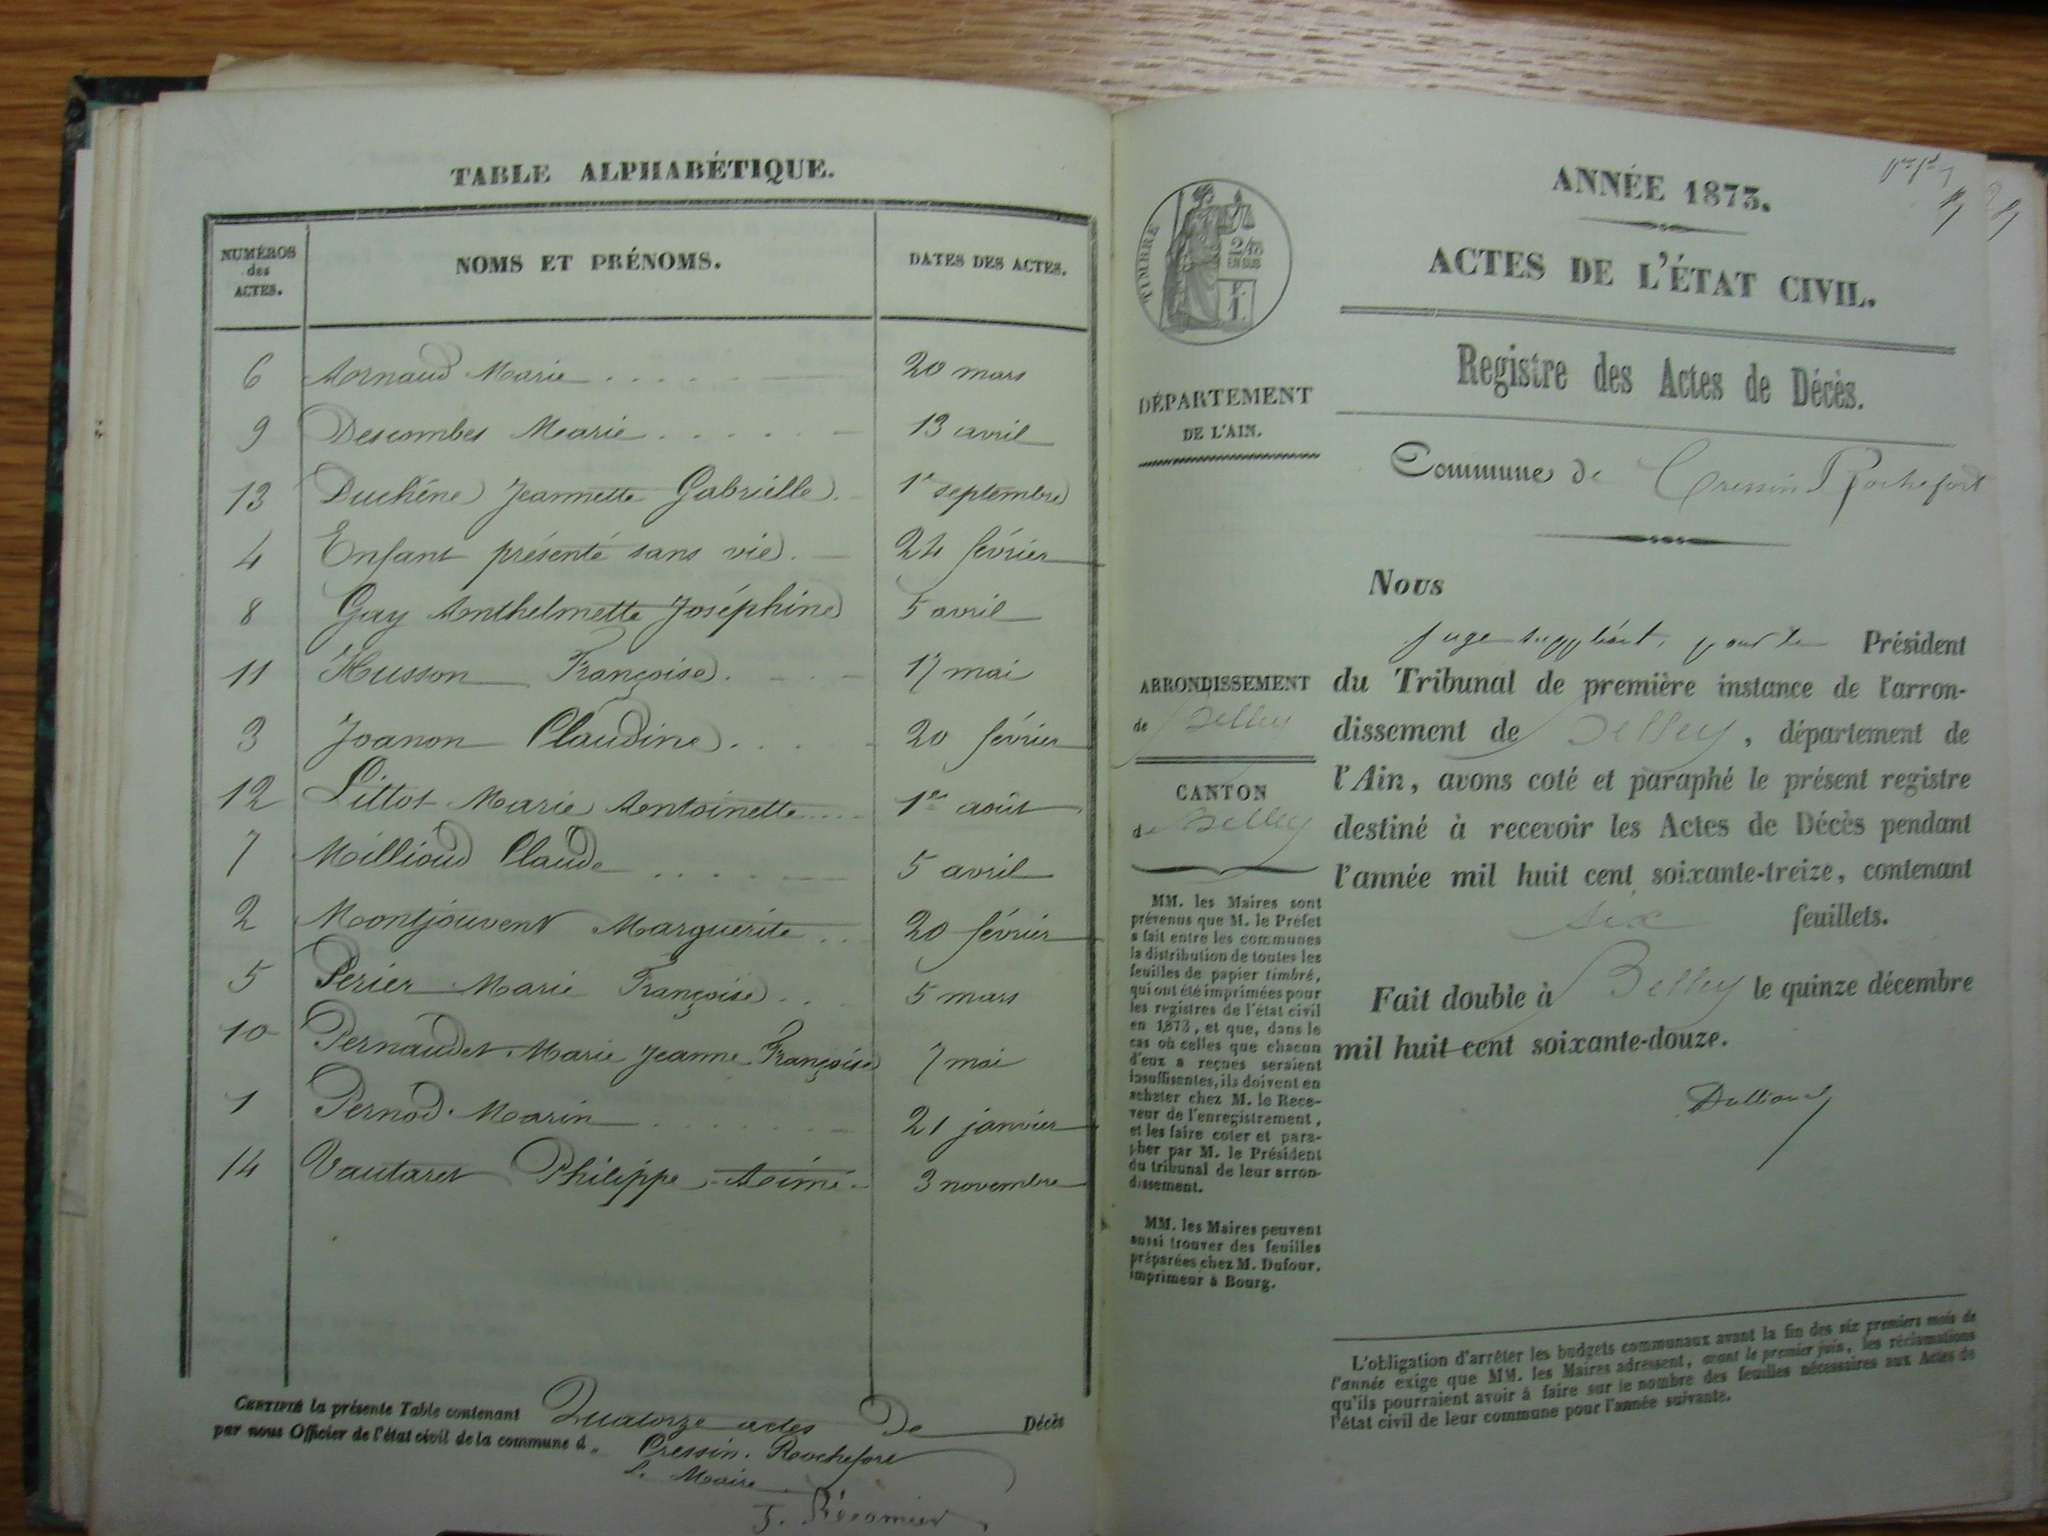 TABLE ALPHABÉTIQUE.
NUMÉROS des ACTES. NOMS ET PRÉNOMS. DATES DES ACTES.
6 Arnaud Marie 20 mars
9 Descombes Marie 13 avril
13 Duchêne Jeannette Gabrielle 1er septembre
4 Enfant présenté sans vie 24 février
8 Gay Anthelmette Joséphine 5 avril
11 Husson Françoise 17 mai
3 Joanon Claudine 20 février
12 Littot Marie Antoinette 1er août
7 Millioud Claude 5 avril
2 Montjouvent Marguerite 20 février
5 Perier Marie Françoise 5 mars
10 Pernaudet Marie Jeanne Françoise 7 mai
1 Pernod Marin 21 janvier
14 Vautaret Philippe Aimé 3 novembre
CERTIFIÉ la présente Table contenant Quatorze actes De Décès
par nous Officier de l'état civil de la commune d. Cressin-Rochefort
L. Maire
TIMBRE
2/10
EN SUS
DÉPARTEMENT
DE L'AIN.
ARRONDISSEMENT
de Belley
CANTON
de Belley
MM. les Maires sont
prévenus que M. le Préfet
a fait entre les communes
la distribution de toutes les
feuilles de papier timbré,
qui ont été imprimées pour
les registres de l'état civil
en 1873, et que, dans le
cas où celles que chacun
d'eux a reçues seraient
insuffisentes, ils doivent en
acheter chez M. le Rece-
veur de l'enregistrement,
et les faire coter et para-
pher par M. le Président
du tribunal de leur arron-
dissement.
MM. les Maires peuvent
aussi trouver des feuilles
préparées chez M. Dufour,
imprimeur à Bourg.
ANNÉE 1873.
ACTES DE L'ÉTAT CIVIL.
Registre des Actes de Décès.
Commune de Cressin Rochefort
Nous
juge suppléant, pour le Président
du Tribunal de première instance de l'arron-
dissement de Belley, département de
l'Ain, avons coté et paraphé le présent registre
destiné à recevoir les Actes de Décès pendant
l'année mil huit cent soixante-treize, contenant
six feuillets.
Fait double à Belley le quinze décembre
mil huit cent soixante-douze.
L'obligation d'arrêter les budgets communaux avant la fin des six premiers mois de
l'année exige que MM. les Maires adressent, avant le premier juin, les réclamations
qu'ils pourraient avoir à faire sur le nombre des feuilles nécessaires aux Actes de
l'état civil de leur commune pour l'année suivante.